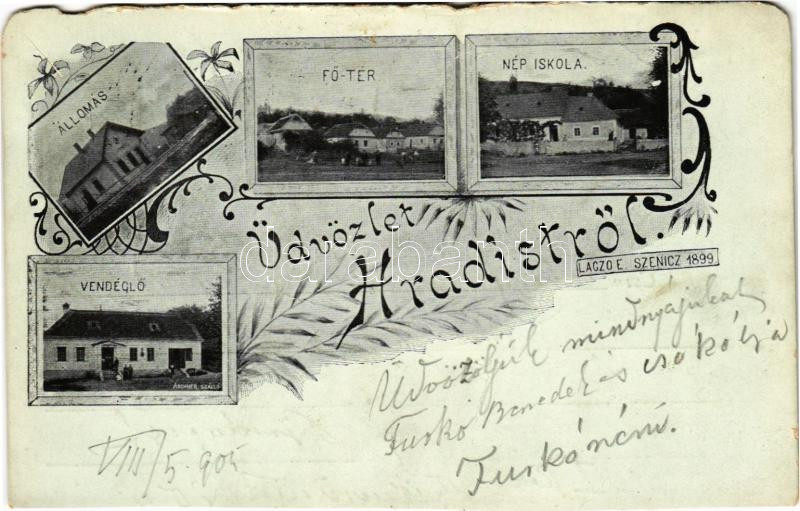 ÁLLOMÁS
FŐ-TÉR
NÉP ISKOLA.
Üdvözlet
Hradistről.
LACZO E. SZENICZ 1899
VENDÉGLŐ
darabanth
Üdvözöljük mindnyájukat
Furkó Benedek és csókolja
Furkónéni.
VIII/5. 905